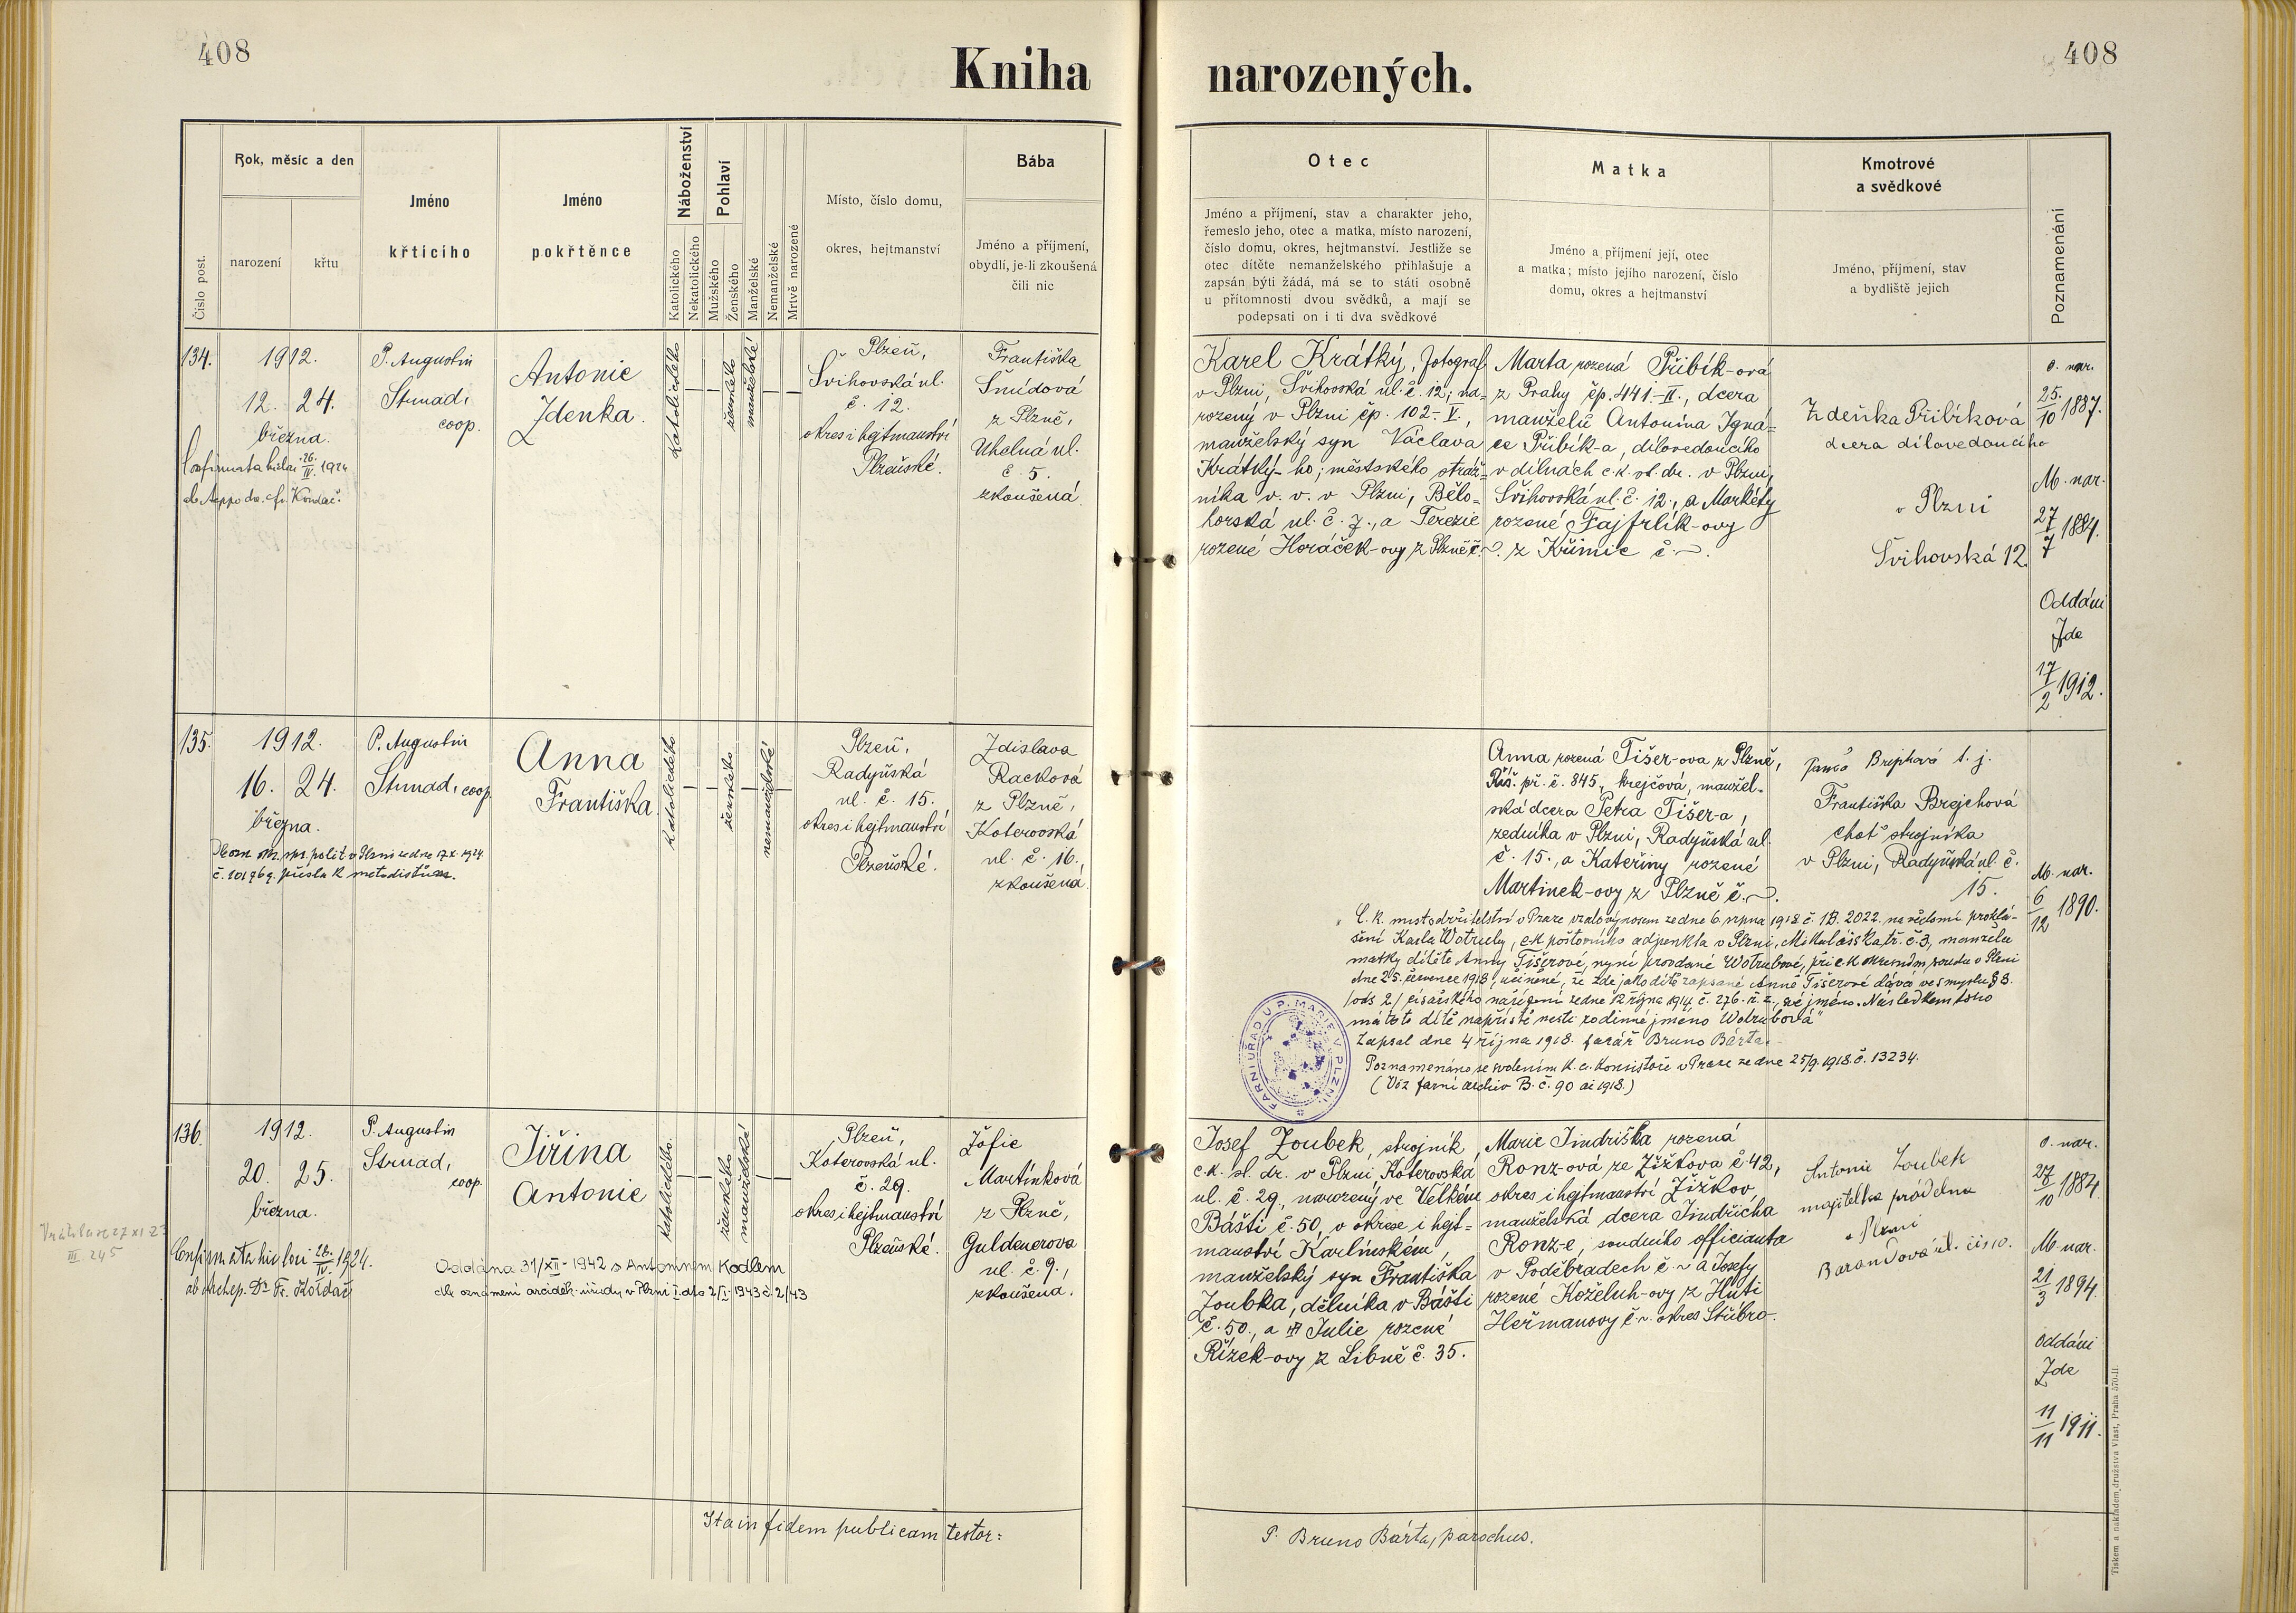 408
Kniha narozených.
408
Číslo post.
Rok, měsíc a den
narození
křtu
Jméno
křticího
Jméno
pokřtěnce
Náboženství
Katolického
Nekatolického
Pohlaví
Mužského
Ženského
Manželské
Nemanželské
Mrtvě narozené
Místo, číslo domu,
okres, hejtmanství
Bába
Jméno a příjmení,
obydlí, je-li zkoušená
čili nic
Otec
Jméno a příjmení, stav a charakter jeho,
řemeslo jeho, otec a matka, místo narození,
číslo domu, okres, hejtmanství. Jestliže se
otec dítěte nemanželského přihlašuje a
zapsán býti žádá, má se to státi osobně
u přítomnosti dvou svědků, a mají se
podepsati on i ti dva svědkové
Matka
Jméno a příjmení její, otec
a matka; místo jejího narození, číslo
domu, okres a hejtmanství
Kmotrové
a svědkové
Jméno, příjmení, stav
a bydliště jejich
Poznamenání
134.
1912.
12. 24.
března.
Confirmata hic loci 26./IV. 1924
P. Augustin
Strnad,
coop.
Antonie
Zdenka.
Katolického
ženského
manželské
Plzeň,
Švihovská ul.
č. 12.
okres i hejtmanství
Plzeňské.
Františka
Šmídová
z Plzně,
Uhelná ul.
č. 5.
zkoušená.
Karel Krátký, fotograf
v Plzni, Švihovská ul. č. 12; na=
rozený v Plzni čp. 102-V.,
manželský syn Václava
Krátký-ho; městského stráž=
níka v. v. v Plzni, Bělo=
horská ul. č. 7., a Terezie
rozené Horáček-ovy z Plzně č. ~.
Marta rozená Přibík-ová
z Prahy čp. 441.-II., dcera
manželů Antonína Igná=
ce Přibík-a, dílovedoucího
v dílnách c. k. st. dr. v Plzni,
Švihovská ul. č. 12., a Markéty
rozené Fajfrlík-ovy
z Křimic č. ~.
Zdeňka Přibíková
dcera dílovedoucího
v Plzni
Švihovská 12.
O. nar.
25./10 1887.
M. nar.
27/7 1884.
Oddáni
Zde
17/2 1912.
135.
1912.
16. 24.
března.
č. 101969. přešla k metodistům.
P. Augustin
Strnad, coop.
Anna
Františka
Katolického
ženského
nemanželské
Plzeň,
Radyňská
ul. č. 15.
okres i hejtmanství
Plzeňské.
Zdislava
Racková
z Plzně,
Koterovská
ul. č. 16.,
zkoušená.
Anna rozená Tišer-ova z Plzně,
Říš. př. č. 845, krejčová, manžel-
ská dcera Petra Tišer-a,
zedníka v Plzni, Radyňská ul.
č. 15., a Kateřiny rozené
Martinek-ovy z Plzně č. ~.
Brejchová t. j.
Františka Brejchová
choť strojníka
v Plzni, Radyňská ul. č.
15.
M. nar.
6/12 1890.
C. k. místodržitelství v Praze vzalo výnosem ze dne 6. srpna 1918 č. 1B. 2022. na vědomí prohlá-
šení Karla Wotruby, c.k. poštovního adjunkta v Plzni, Mikulášská tř. č. 3, manžela
matky dítěte Anny Tišerové, nyní provdané Wotrubové, při c.k. okresním soudu v Plzni
dne 25. července 1918, učiněné, že zde jako dítě zapsané Anně Tišerové dává ve smyslu § 3.
/ods. 2/ císařského nařízení ze dne 12 října 1914 č. 276. ř. z., své jméno. Následkem toho
má toto dítě napříště nésti rodinné jméno "Wotrubová"
Zapsal dne 4 října 1918. farář Bruno Bárta.
Poznamenáno se svolením k. a. Konsistoře v Praze ze dne 25/9. 1918. č. 13234.
(Viz farní archiv B. č. 90 ai 1918.)
FARNÍ ÚŘAD U P. MARIE V PLZNI.
136.
1912.
20. 25.
března.
III 245
Confirmata hic loci 26./IV. 1924.
P. Augustin
Strnad,
coop.
Jiřina
Antonie
Katolického.
ženského
manželské
Oddána 31/XII-1942 s Antonínem Kodlem
dle oznámení arciděk. úřadu v Plzni I. dto 2/I-1943 č. 2/43
Plzeň,
Koterovská ul.
č. 29.
okres i hejtmanství
Plzeňské.
Žofie
Martínková
z Plzně,
Guldenerova
ul. č. 9.,
zkoušená.
Josef Zoubek, strojník
c.k. st. dr. v Plzni, Koterovská
ul. č. 29, narozený ve Velkém
Bášti č. 50, v okrese i hejt=
manství Karlínském,
manželský syn Františka
Zoubka, dělníka v Bášti
č. 50., a Julie rozené
Řízek-ovy z Libně č. 35.
Marie Jindřiška rozená
Ronz-ová ze Žižkova č. 42,
okres i hejtmanství Žižkov
manželská dcera Jindřicha
Ronz-e, soudního officianta
v Poděbradech č. ~ a Josefy
rozené Koželuh-ovy z Huti
Heřmanovy č. ~. okres Stříbro.
Antonie Zoubek
majitelka prádelna
v Plzni
O. nar.
27/10 1884.
M. nar.
21/3 1894.
Oddáni
Zde
11/11 1911.
Ita in fidem publicam testor:
P. Bruno Bárta, parochus.
Tiskem a nákladem družstva Vlast, Praha 570-II.